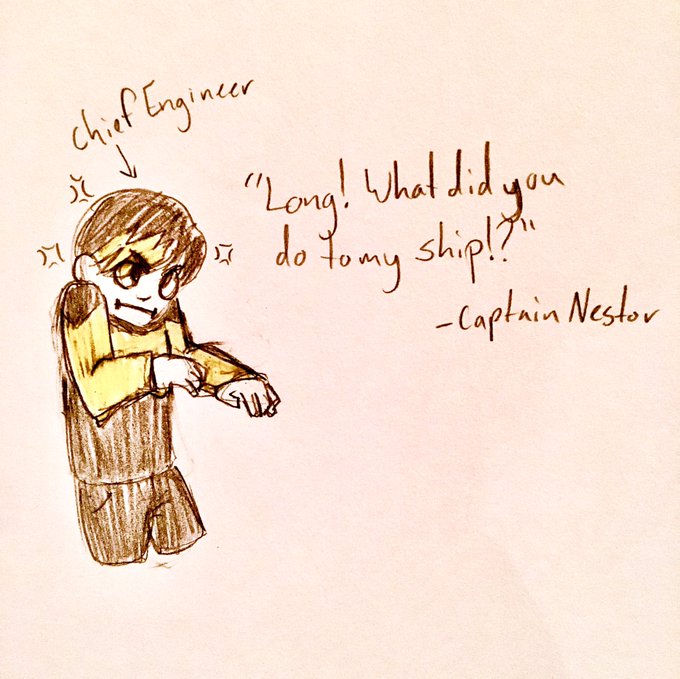 chief Engineer
"Long! What did you
do to my ship!?"
-Captain Nestor